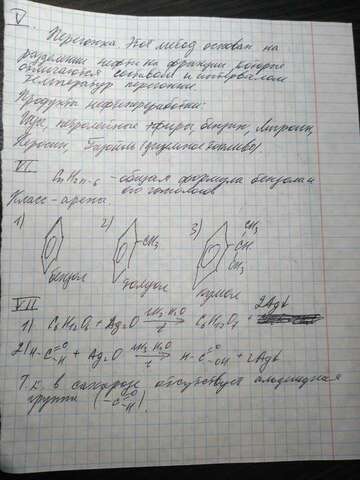 V
Перегонка. Этот метод основан на
разделении нефти на фракции, которые
отличаются составом и интервалом
температур перегонки.
Продукты нефтепереработки:
Газы, петролейные эфиры, бензин, Лигроин,
Керосин, Газойль (дизельное топливо)
VI
CnH2n-6 - общая формула бензола и
его гомологов
Класс - арены.
1) 2) 3)
CH3
CH3
CH
CH3
бензол толуол кумол
VII
1) C6H12O6 + Ag2O NH3 H2O t C6H12O7 + 2Ag↓
2) H-C=O -H + Ag2O NH3 H2O t H-C=O -OH + 2Ag↓
Т.к. в сахарозе отсутствует альдегидная
группа (-C=O -H).